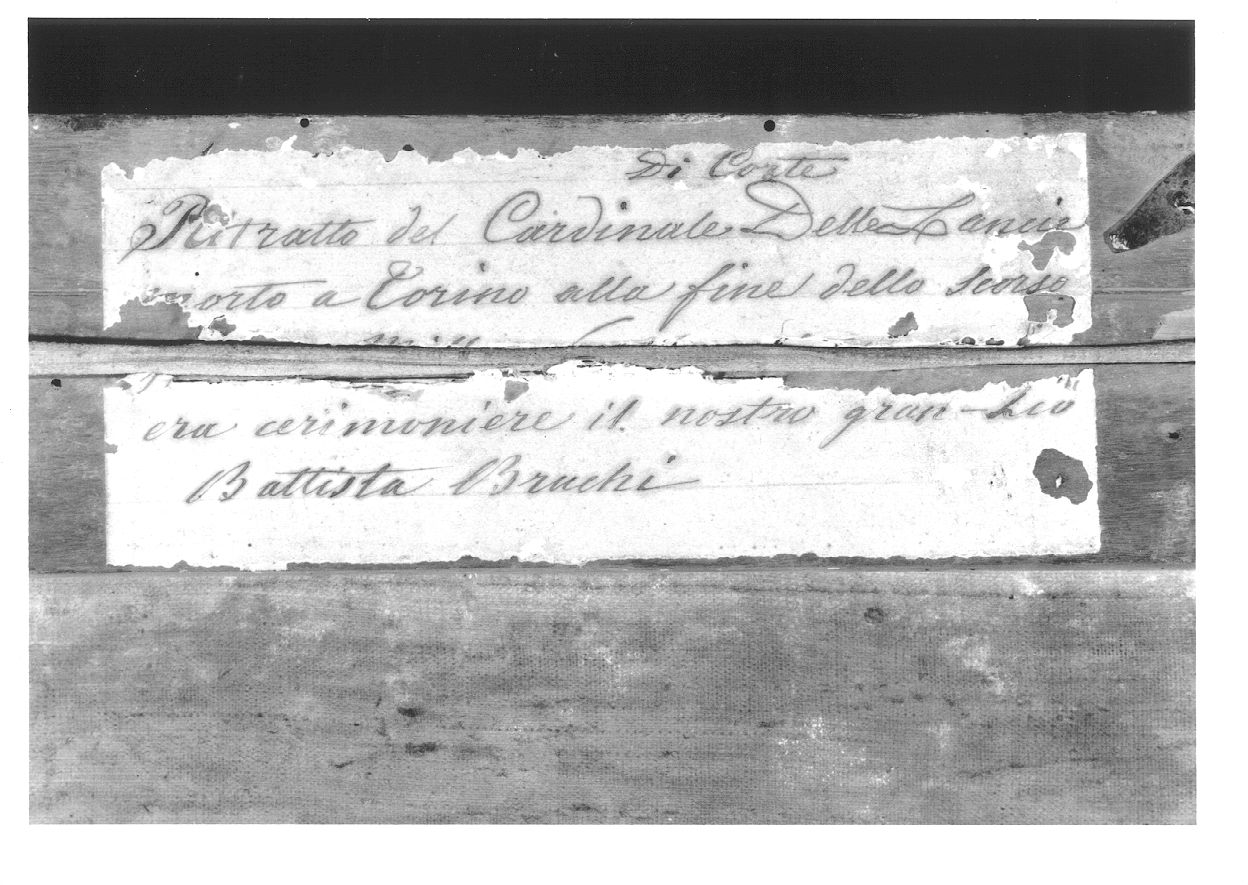 Di Corte
Ritratto del Cardinale Delle Lancie
morto a Torino alla fine dello scorso
era cerimoniere il nostro gran-zio
Battista Bruchi